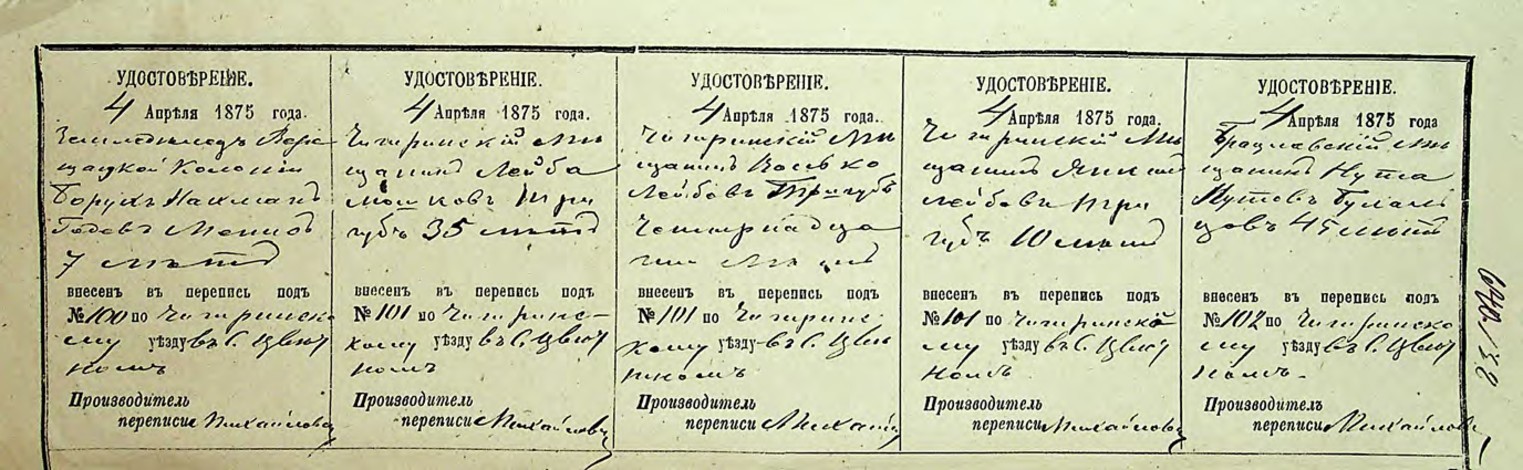 УДОСТОВѢРЕНІЕ.
4 Апрѣля 1875 года.
Колоніи
Борухъ Нахманъ
7 лѣтъ
внесенъ въ перепись подъ
№ 100 по Чигиринско
му уѣзду въ с. Цвѣт
номъ
Производитель
переписи Михайловъ
УДОСТОВѢРЕНІЕ.
4 Апрѣля 1875 года.
Чигиринскій мѣ
щанинъ Лейба
Мошковъ Три
губъ 35 лѣтъ
внесенъ въ перепись подъ
№ 101 по Чигиринс-
кому уѣзду въ с. Цвѣт
номъ
Производитель
переписи Михайловъ
УДОСТОВѢРЕНІЕ.
4 Апрѣля 1875 года.
Чигиринскій мѣ
щанинъ Иосько
Лейбовъ Тригубъ
Четырнадца
ти лѣтъ
внесенъ въ перепись подъ
№ 101 по Чигиринс-
кому уѣзду въ с. Цвѣ
тномъ
Производитель
переписи
УДОСТОВѢРЕНІЕ.
4 Апрѣля 1875 года.
Чигиринскій мѣ
щанинъ
Лейбовъ Три
губъ 10 лѣтъ
внесенъ въ перепись подъ
№ 101 по Чигиринско
му уѣзду въ с. Цвѣт
номъ
Производитель
переписи Михайловъ
УДОСТОВѢРЕНІЕ.
4 Апрѣля 1875 года
Брацлавскій мѣ
щанинъ Нута
Нутовъ
45 лѣтъ
внесенъ въ перепись подъ
№ 102 по Чигиринско
му уѣзду въ с. Цвѣт
номъ
Производитель
переписи Михайловъ